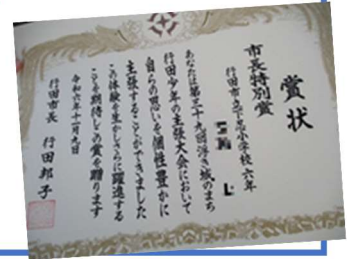 賞状
市長特別賞
行田市立下忍小学校六年
あなたは第三十九回浮き城のまち
行田少年の主張大会において
自らの思いを個性豊かに
主張することができました
この体験を生かしさらに躍進する
ことを期待しこの賞を贈ります
令和六年十一月九日
行田市長 行田邦子